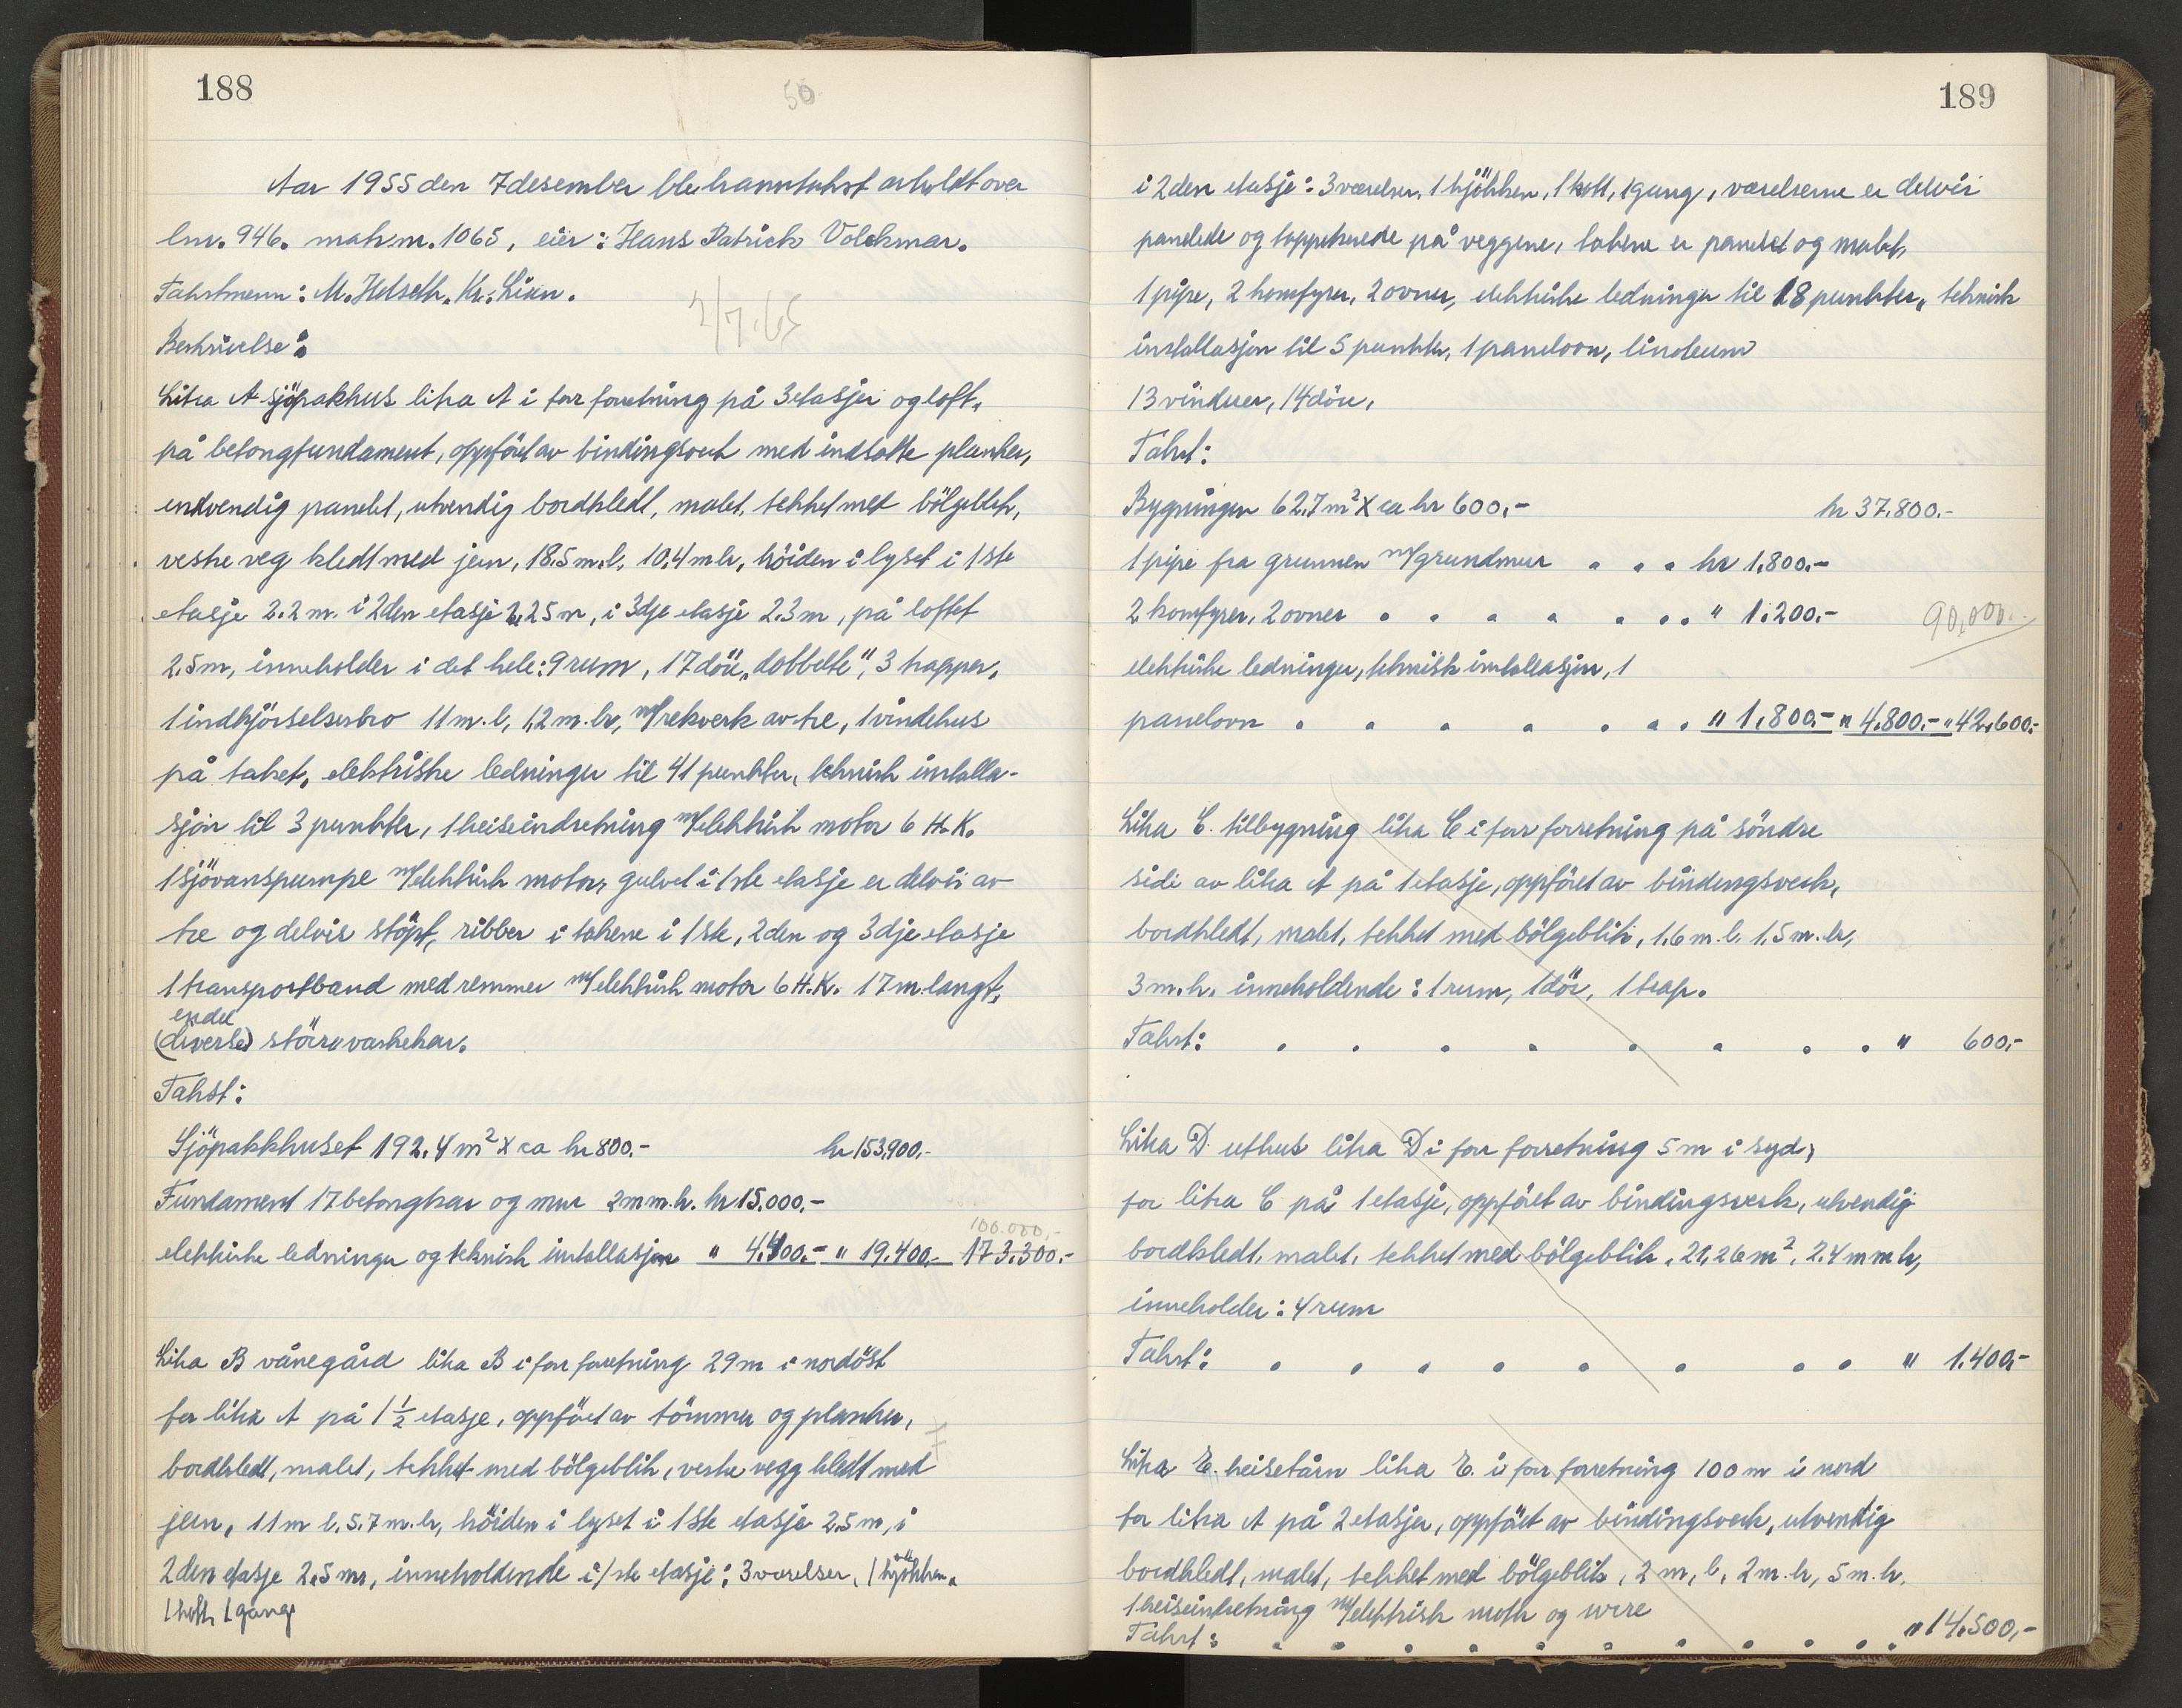 188
50
Aar 1955 den 7 desember ble branntakst avholdt over
lnr. 946. matr.nr. 1065, eier: Hans Patrick Volckmar.
Takstmenn: M. Helseth. Kr. Lian.
2/7.65
Beskrivelse:
Litra A sjöpakhus litra A i forr forretning på 3 etasjer og loft,
på betongfundament, oppfört av bindingsverk med indlatte planker,
indvendig panelet, utvendig bordkledt, malet, tekket med bölgeblek,
vestre veg kledt med jern, 18.5 m.l. 10.4 m br, höiden i lyset i 1ste
etasje 2.2 m. i 2den etasje 2,25 m, i 3dje etasje 2.3 m, på loftet
2.5 m, inneholder i det hele: 9 rum, 17 döre „dobbelte", 3 trapper,
1 indkjörselsbro 11 m.l, 1,2 m.br, m/rekverk av tre, 1 vindehus
på taket, elektriske ledninger til 41 punkter, teknisk installa-
sjon til 3 punkter, 1 heiseindretning m/elektrisk motor 6 H.K.
1 sjövanspumpe m/elektrisk motor, gulvet i 1ste etasje er delvis av
tre og delvis stöpt, ribber i takene i 1ste, 2den og 3dje etasje
1 transportband med remmer m/elektrisk motor 6 H.K. 17 m. langt,
endel
(diverse) större vaskekar.
Takst:
Sjöpakkhuset 192.4 m² x ca kr 800.- kr 153.900.-
Fundament 17 betongkar og mur 2 m m.h. kr 15.000.-
100.000,-
elektriske ledninger og teknisk installasjon " 4.400.- " 19.400.- 173.300.-
Litra B vånegård litra B i forr forretning 29 m i nordöst
for litra A på 1 1/2 etasje, oppfört av tömmer og planker,
bordkledt, malet, tekket med bölgeblik, vestre vegg kledt med
jern, 11 m l. 5.7 m. br, höiden i lyset i 1ste etasje 2.5 m, i
2den etasje 2.5 m, inneholdende i 1ste etasje: 3 værelser, 1 kjökken,
1 kott, 1 gang
189
i 2den etasje: 3 værelser, 1 kjökken, 1 kott, 1 gang, værelserne er delvis
panelede og tappetserede på veggene, takene er panelet og malet,
1 pipe, 2 komfyrer, 2 ovner, elektriske ledninger til 18 punkter, teknisk
installasjon til 5 punkter, 1 panelovn, linoleum
13 vinduer, 14 döre,
Takst:
Bygningen 62.7 m² x ca kr 600,- kr 37.800.-
1 pipe fra grunnen m/grundmur . . . kr 1.800.-
2 komfyrer, 2 ovner . . . . . . . " 1.200.-
90,000.-
elektriske ledninger, teknisk installasjon, 1
panelovn . . . . . . . " 1.800.- " 4.800.- " 42.600.-
Litra C. tilbygning litra C i forr forretning på söndre
side av litra A på 1 etasje, oppfört av bindingsverk,
bordkledt, malet, tekket med bölgeblik, 1.6 m.l. 1.5 m. br,
3 m.h. inneholdende: 1 rum, 1 dör, 1 trap.
Takst: . . . . . . . . . " 600.-
Litra D. uthus litra D i forr forretning 5 m i syd,
for litra C på 1 etasje, oppfört av bindingsverk, utvendig
bordkledt, malet, tekket med bölgeblik, 21,26 m², 2.4 m m h,
inneholder: 4 rum
Takst: . . . . . . . . " 1.400,-
Litra E. heisetårn litra E. i forr forretning 100 m i nord
for litra A på 2 etasjer, oppfört av bindingsverk, utvendig
bordkledt, malet, tekket med bölgeblik, 2 m, l, 2 m. br, 5 m. h.
1 heiseindretning m/elektrisk motor og wire
Takst: . . . . . . . . . . . " 14.500,-